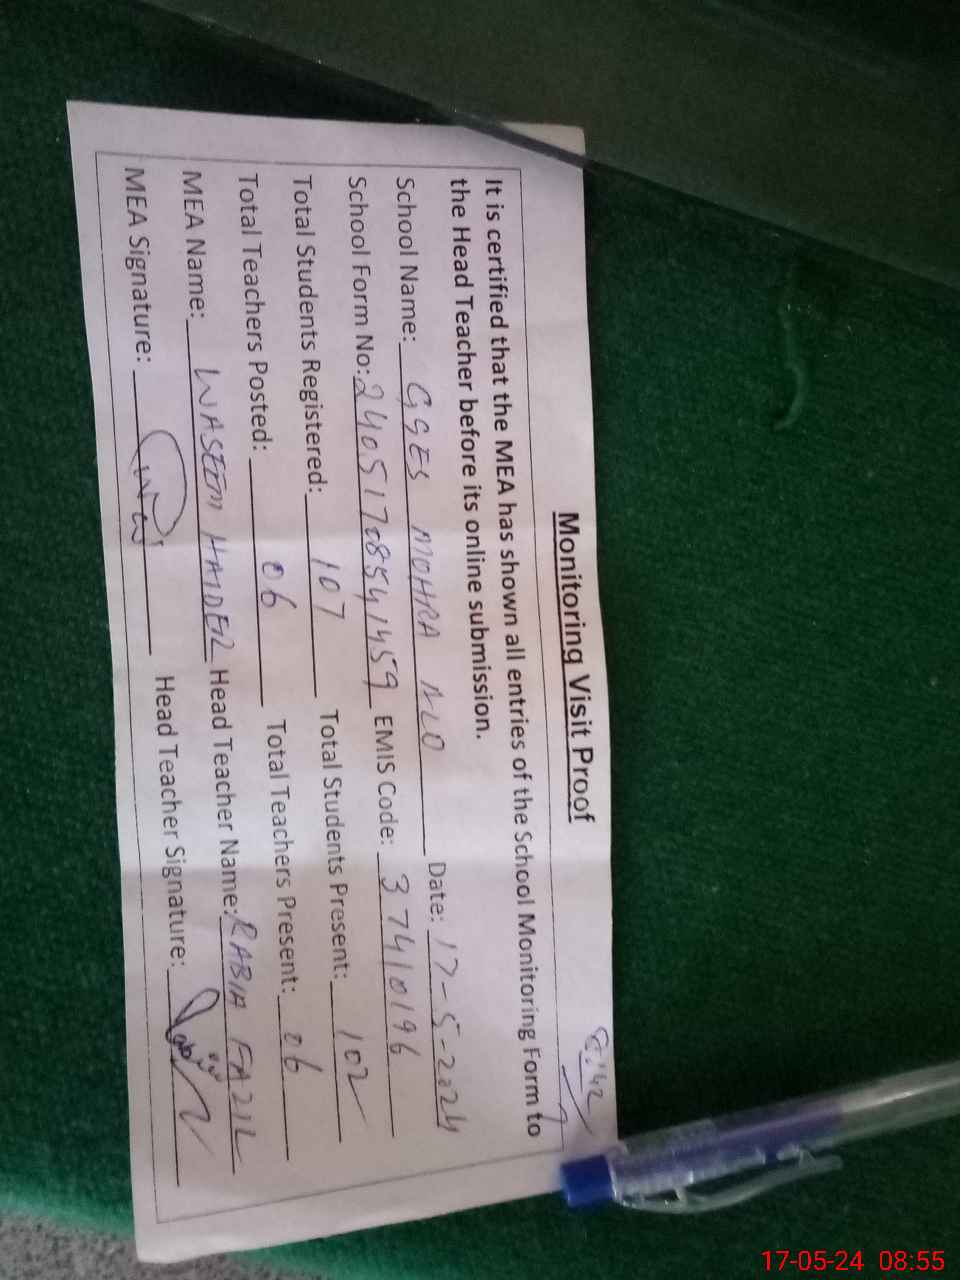 8:42
Monitoring Visit Proof
It is certified that the MEA has shown all entries of the School Monitoring Form to
the Head Teacher before its online submission.
School Name: GGES MOHRA ALO Date: 17-5-2024
School Form No: 24051708541459 EMIS Code: 37410196
Total Students Registered: 107 Total Students Present: 102
Total Teachers Posted: 06 Total Teachers Present: 06
MEA Name: WASEEM HAIDER Head Teacher Name: RABIA FAZIL
MEA Signature: Head Teacher Signature:
17-05-24 08:55